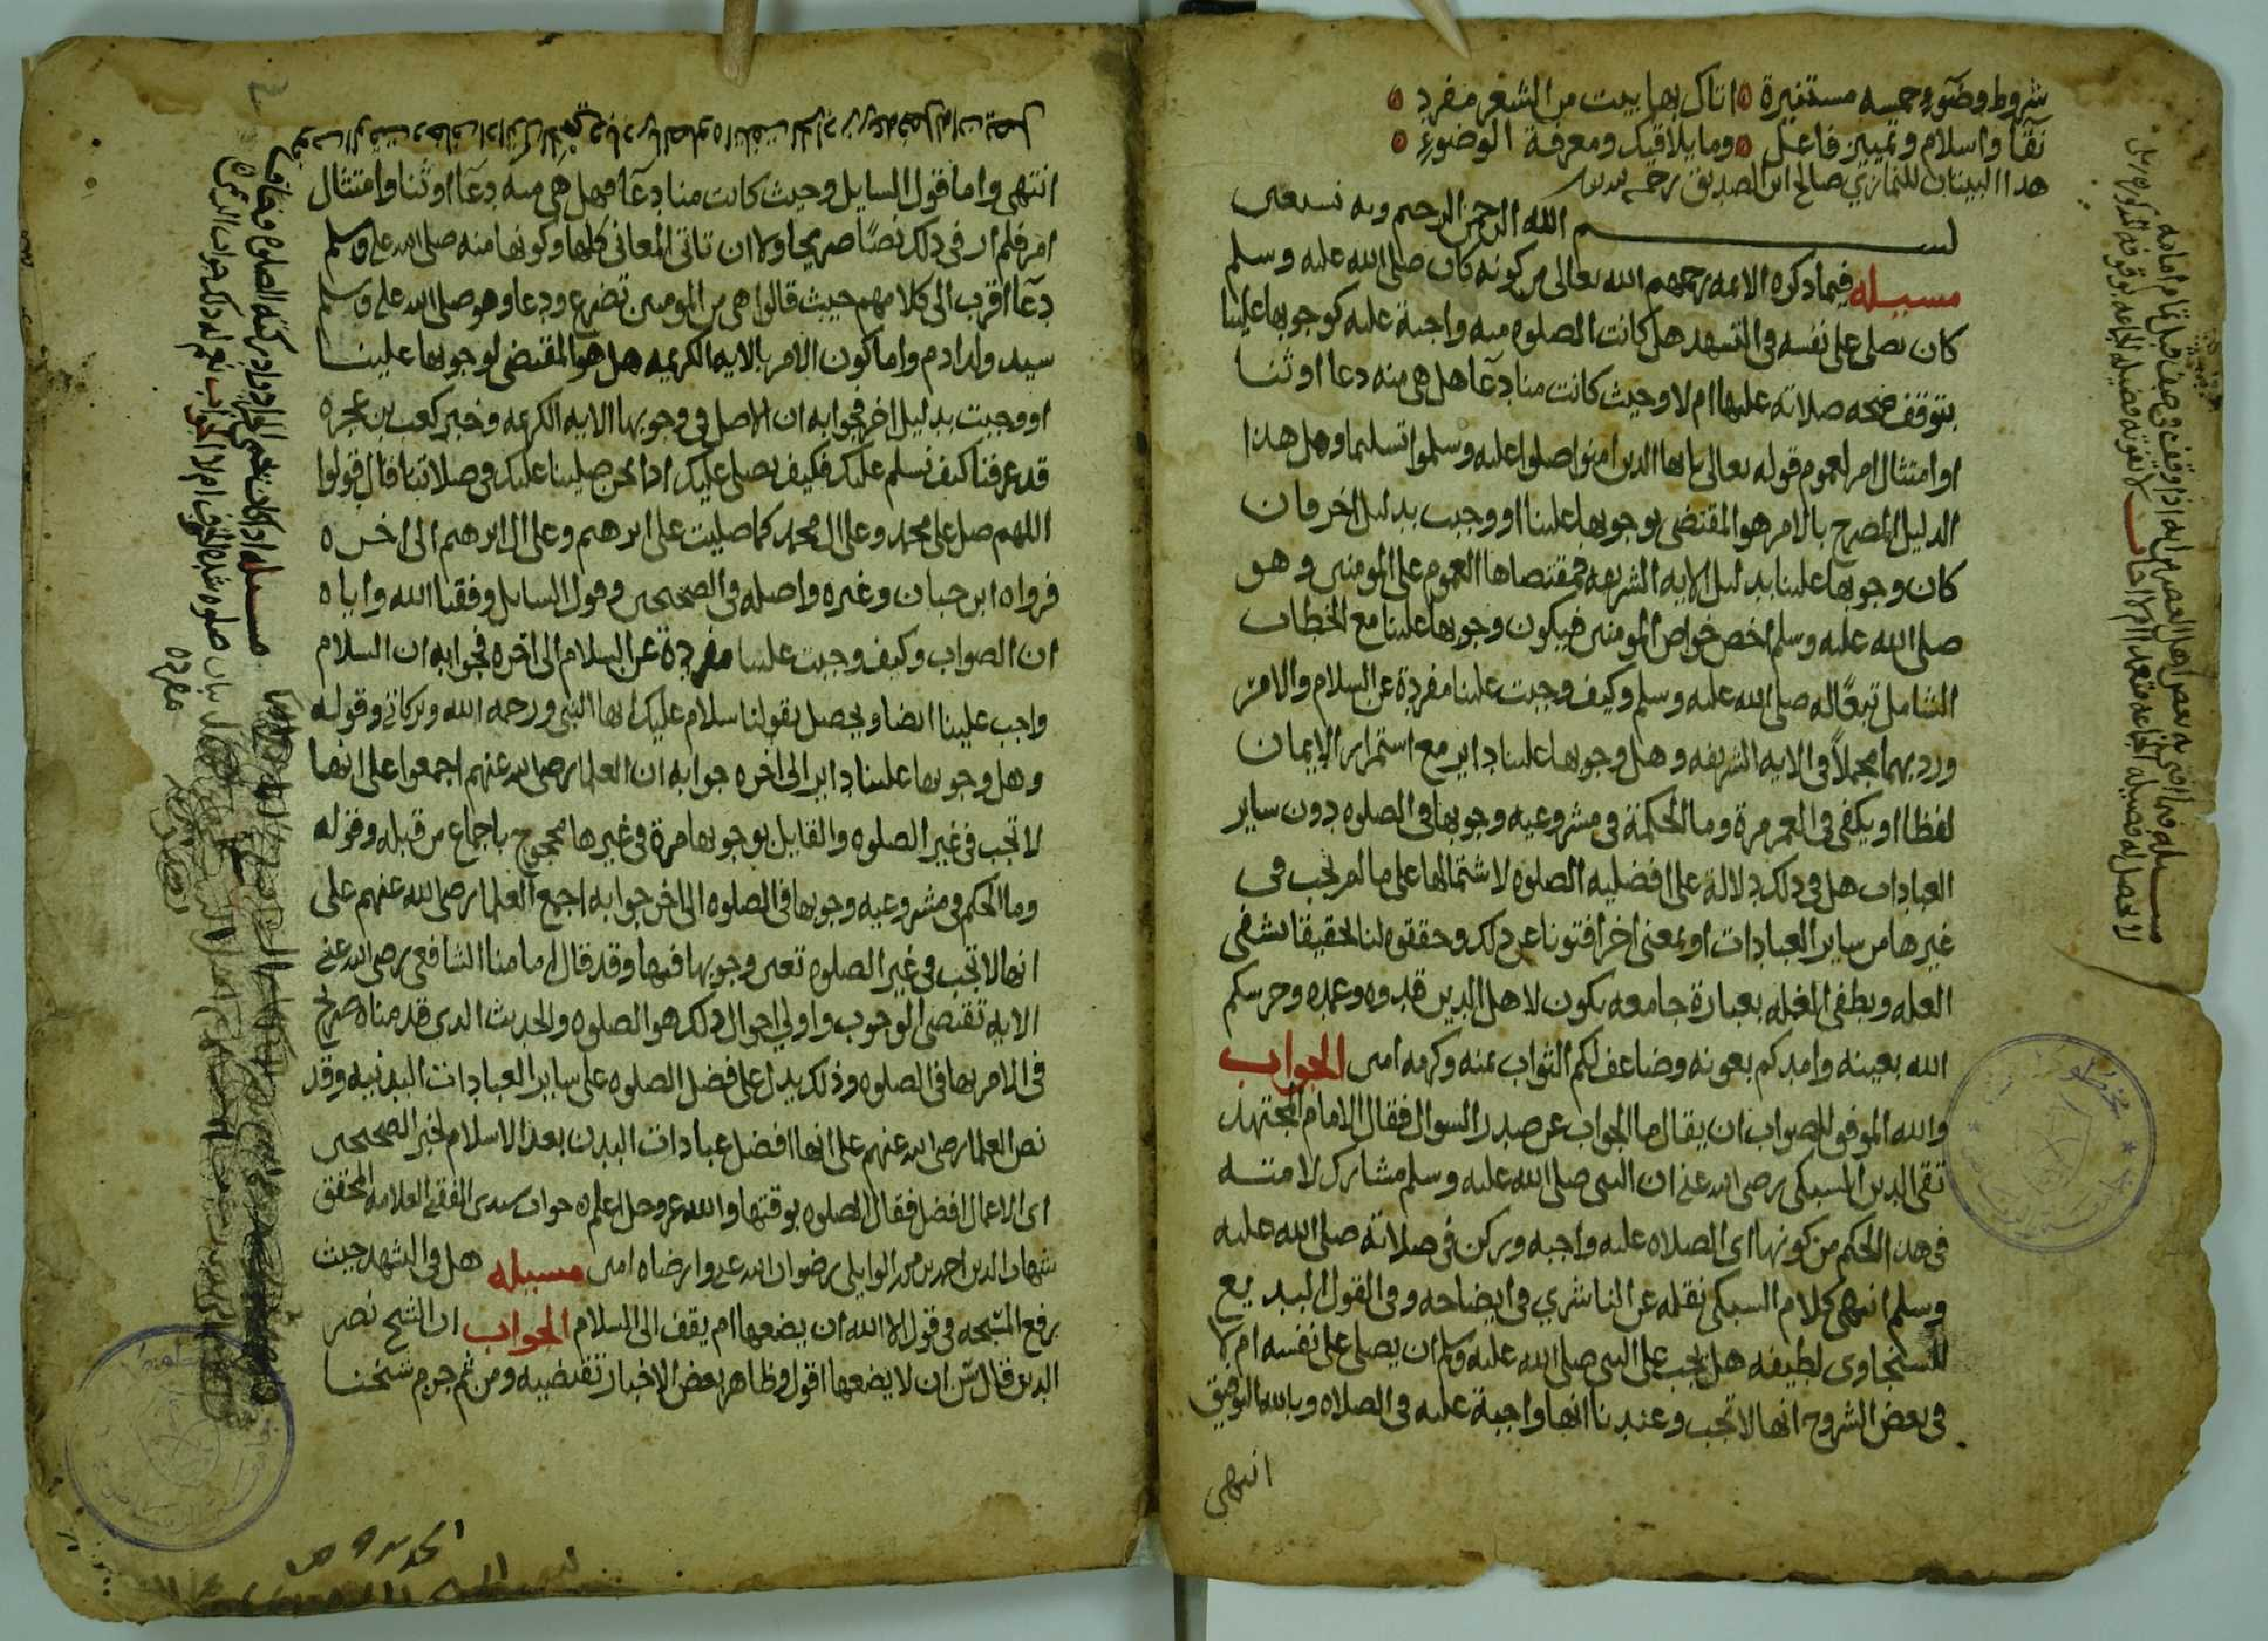 شروط وضوء خمسه مستنيرة ه اتاك بها بيت من الشعر مفرد ه
نقا واسلام وتمييز فاعل ه وما يلاقيك ومعرفة الوضوء ه
هذا البيتان للنمازي صالح ابن الصديق رحمه الله
بسم الله الرحمن الرحيم وبه نستعين
مسيله فيما ذكره الائمه رحمهم الله تعالى من كونه كان صلى الله عليه وسلم
كان يصلي على نفسه في التشهد هل كانت الصلوه منه واجبة عليه كوجوبها علينا
يتوقف صحه صلاته عليها ام لا وحيث كانت منا دعآ هل هي منه دعا او ثنا
او امتثال امر لعموم قوله تعالى يايها الدين امنوا صلوا عليه وسلموا تسليما وهل هذا
الدليل المصرح بالامر هو المقتضي بوجوبها علينا او وجبت بدليل اخر فان
كان وجوبها علينا بدليل الايه الشريفه فمقتضاها العموم على المومنين وهو
صلى الله عليه وسلم اخص خواص المومنين فيكون وجوبها علينا مع الخطاب
الشامل تبعًا له صلى الله عليه وسلم وكيف وجبت علينا مفردة عن السلام والامر
ورد بهما مجملاً في الايه الشريفه وهل وجوبها علينا داير مع استمرار الايمان
لفظا او يكفي في العمر مرة وما الحكمة في مشروعيه وجوبها في الصلوه دون ساير
العبادات هل في ذلك دلالة على افضليه الصلوه لاشتمالها على ما لم يجب في
غيرها من ساير العبادات او بمعنى اخر افتونا عن ذلك وحققوه لنا تحقيقا يشفي
العله ويطفي الغله بعبارة جامعه يكون لاهل الدين قدوه وعمده وحرسكم
الله بعينه وامدكم بعونه وضاعف لكم الثواب بمنه وكرمه امين الجواب
والله الموفق للصواب ان يقال ما الجواب عن صدر السوال فقال الامام المجتهد
تقي الدين السبكي رضي الله عنه ان النبي صلى الله عليه وسلم مشارك لامته
في هذا الحكم من كونها اى الصلاه عليه واجبه وركن في صلاته صلى الله عليه
وسلم انتهى كلام السبكي نقله عن الناشري في ايضاحه وفي القول البديع
للسخاوى لطيفه هل يجب على النبي صلى الله عليه وسلم ان يصلي على نفسه ام لا
في بعض الشروح انها لا تجب وعندنا انها واجبة عليه في الصلاه وبالله التوفيق
انتهى
انتهى واما قول السايل وحيث كانت منا دعآ فهل هي منه دعآ او ثنا وامتثال
امر فلم ار في ذلك نصًا صريحا ولا ان تاتى المعاني كلها وكونها منه صلى الله عليه وسلم
دعآ اقرب الى كلامهم حيث قالوا هي من المومنين تضرع ودعا وهو صلى الله عليه وسلم
سيد ولد ادم واما كون الامر بالايه الكريمه هل هو المقتضي لوجوبها علينا
او وجبت بدليل اخر فجوابه ان الاصل في وجوبها الايه الكريمه وخبر كعب بن عجره
قد عرفنا كيف نسلم عليك فكيف نصلي عليك اذا نحن صلينا عليك في صلاتنا قال قولوا
اللهم صل على محمد وعلى ال محمد كما صليت على ابرهيم وعلى ال ابرهيم الى اخره
فرواه ابن حبان وغيره واصله في الصحيحين وقول السايل وفقنا الله واياه
ان الصواب وكيف وجبت علينا مفردة عن السلام الى اخره فجوابه ان السلام
واجب علينا ايضا ويحصل بقولنا سلام عليك ايها النبي ورحمه الله وبركاته وقوله
وهل وجوبها علينا داير الى اخره جوابه ان العلما رضي الله عنهم اجمعوا على انها
لا تجب في غير الصلوه والقايل بوجوبها مرة في غيرها محجوج باجماع من قبله وقوله
وما الحكم في مشروعيه وجوبها في الصلوه الى اخر جوابه اجمع العلما رضي الله عنهم على
انها لا تجب في غير الصلوه تعين وجوبها فيها وقد قال امامنا الشافعي رضي الله عنه
الايه تقتضي الوجوب واولى احوال ذلك هو الصلوه والحديث الدي قدمناه صرح
في الامر بها في الصلوه وذلك يدل على فضل الصلوه على ساير العبادات البدنيه وقد
نص العلما رضي الله عنهم على انها افضل عبادات البدن بعد الاسلام لخبر الصحيحين
اى الاعمال افضل فقال الصلوه بوقتها والله عز وجل اعلم ه جواب سيدي الفقيه العلامه المحقق
شهاب الدين احمد بن محمد الوايلي رضوان الله عليه وارضاه امين مسيله هل في التشهد حيث
يرفع المسبحه في قول الا الله ان يضعها ام يقف الى السلام الجواب ان الشيخ نصر
الدين قال سن ان لا يضعها اقول وظاهر بعض الاخبار تقتضيه ومن ثم جزم شيخنا